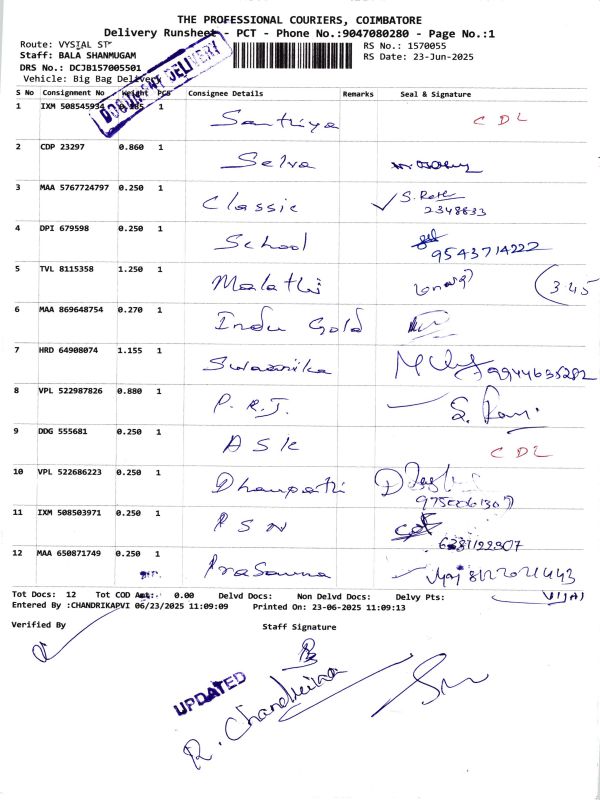 THE PROFESSIONAL COURIERS, COIMBATORE
Delivery Runsheet - PCT - Phone No.:9047080280 - Page No.:1
Route: VYSIAL ST
RS No.: 1570055
Staff: BALA SHANMUGAM
RS Date: 23-Jun-2025
DRS No.: DCJB157005501
Vehicle: Big Bag Delivery
DOCUMENT DELIVERY
S No Consignment No Weight PCS Consignee Details Remarks Seal & Signature
1 IXM 508545934 1 CDL
2 CDP 23297 0.860 1 Selva
3 MAA 5767724797 0.250 1 Classic 2348833
4 DPI 679598 0.250 1 School 9543714222
5 TVL 8115358 1.250 1 Malathi 3.45
6 MAA 869648754 0.270 1 Indu Gold
7 HRD 64908074 1.155 1 9944635282
8 VPL 522987826 0.880 1 P.R.J.
9 DDG 555681 0.250 1 ASK CDL
10 VPL 522686223 0.250 1
11 IXM 508503971 0.250 1 PSN
12 MAA 650871749 0.250 1 Prasanna
Tot Docs: 12 Tot COD Amt: 0.00 Delvd Docs: Non Delvd Docs: Delvy Pts: VIJAI
Entered By :CHANDRIKAPVI 06/23/2025 11:09:09 Printed On: 23-06-2025 11:09:13
Verified By Staff Signature
UPDATED
R. Chandrika